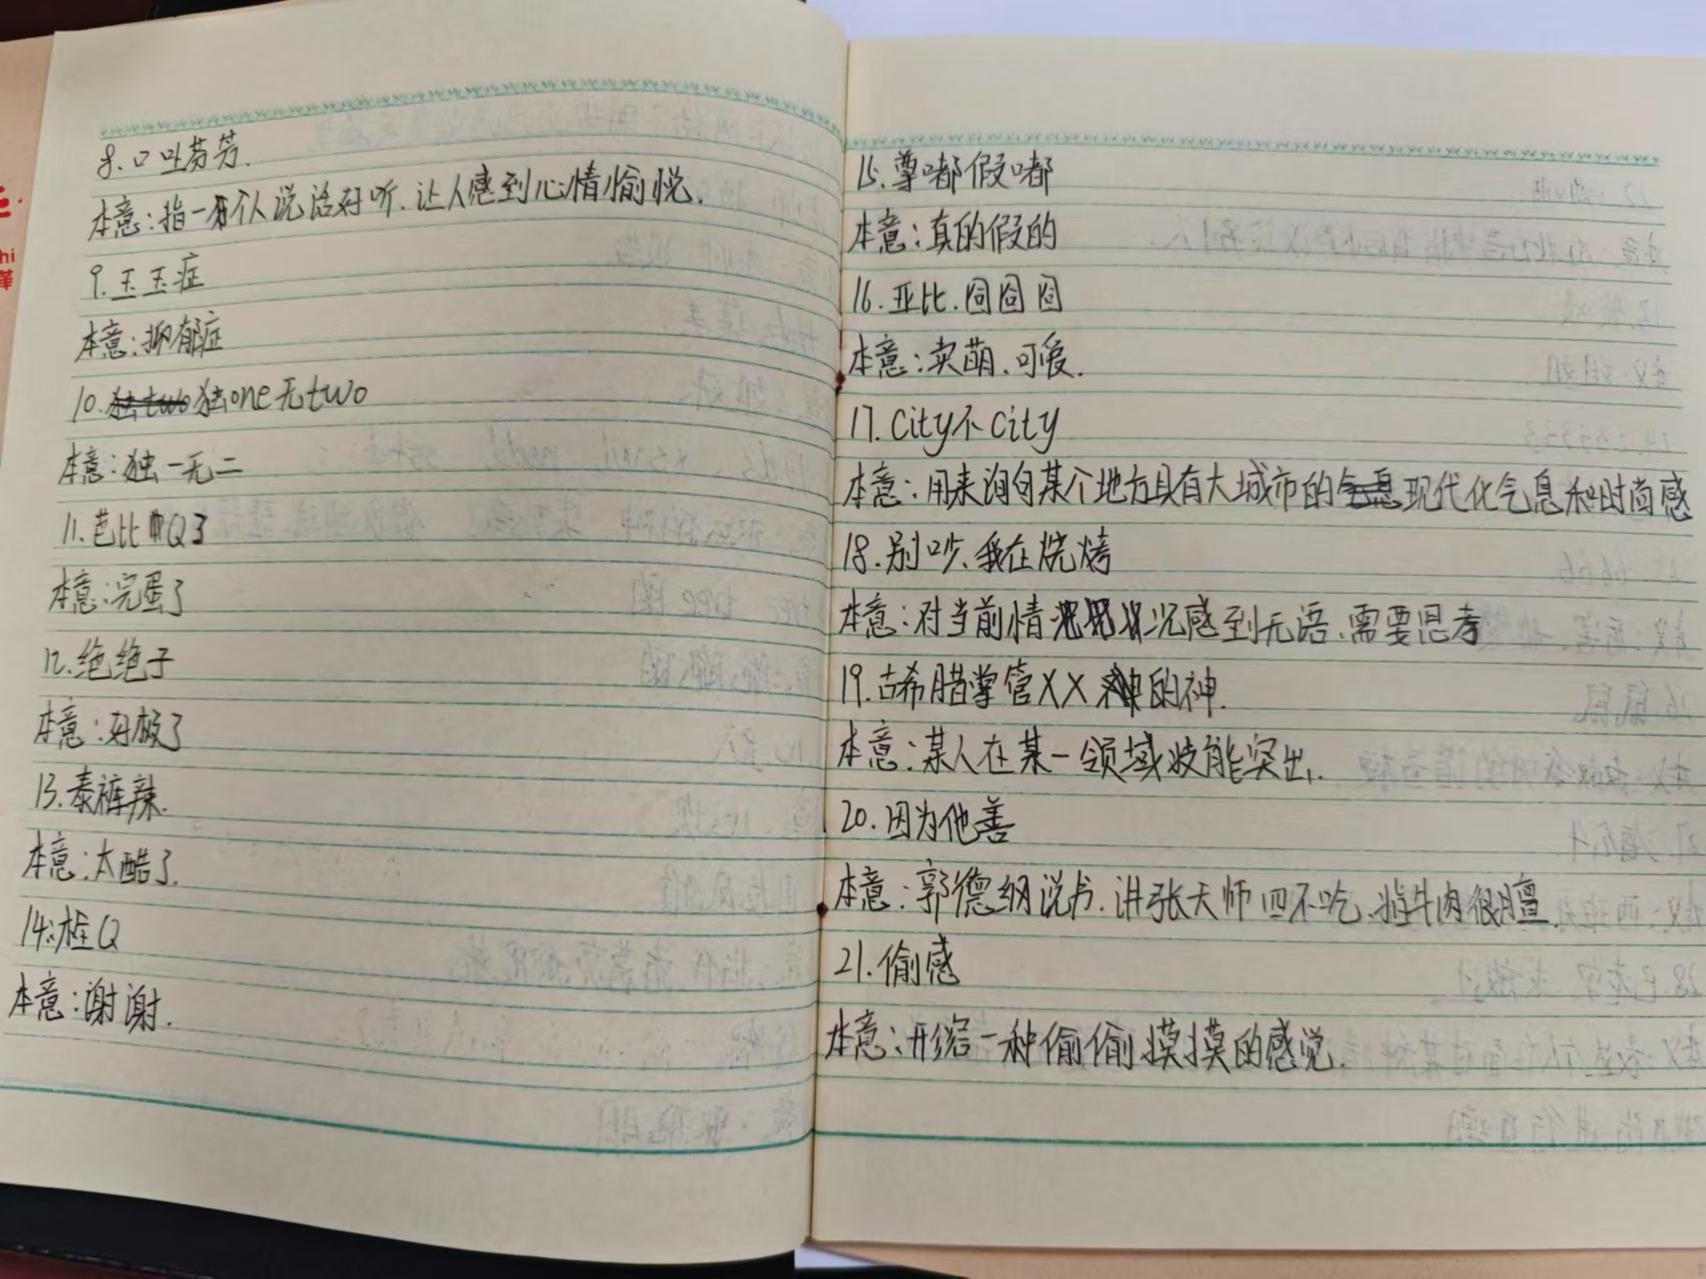 8.口吐芬芳.
本意:指一个人说话好听.让人感到心情愉悦.
9.玉玉症
本意:抑郁症
10.独one无two
本意:独一无二
11.芭比Q了
本意:完蛋了
12.绝绝子
本意:好极了
13.泰裤辣.
本意:太酷了.
14.栓Q
本意:谢谢.
15.尊嘟假嘟
本意:真的假的
16.亚比.囧囧囧
本意:卖萌、可爱.
17.City不City
本意:用来询问某个地方具有大城市的现代化气息和时尚感
18.别吵.我在烧烤
本意:对当前情况感到无语、需要思考
19.古希腊掌管XX的神.
本意:某人在某一领域技能突出.
20.因为他善
本意:郭德纲说书.讲张天师四不吃、牛肉很膻.
21.偷感
本意:形容一种偷偷摸摸的感觉.